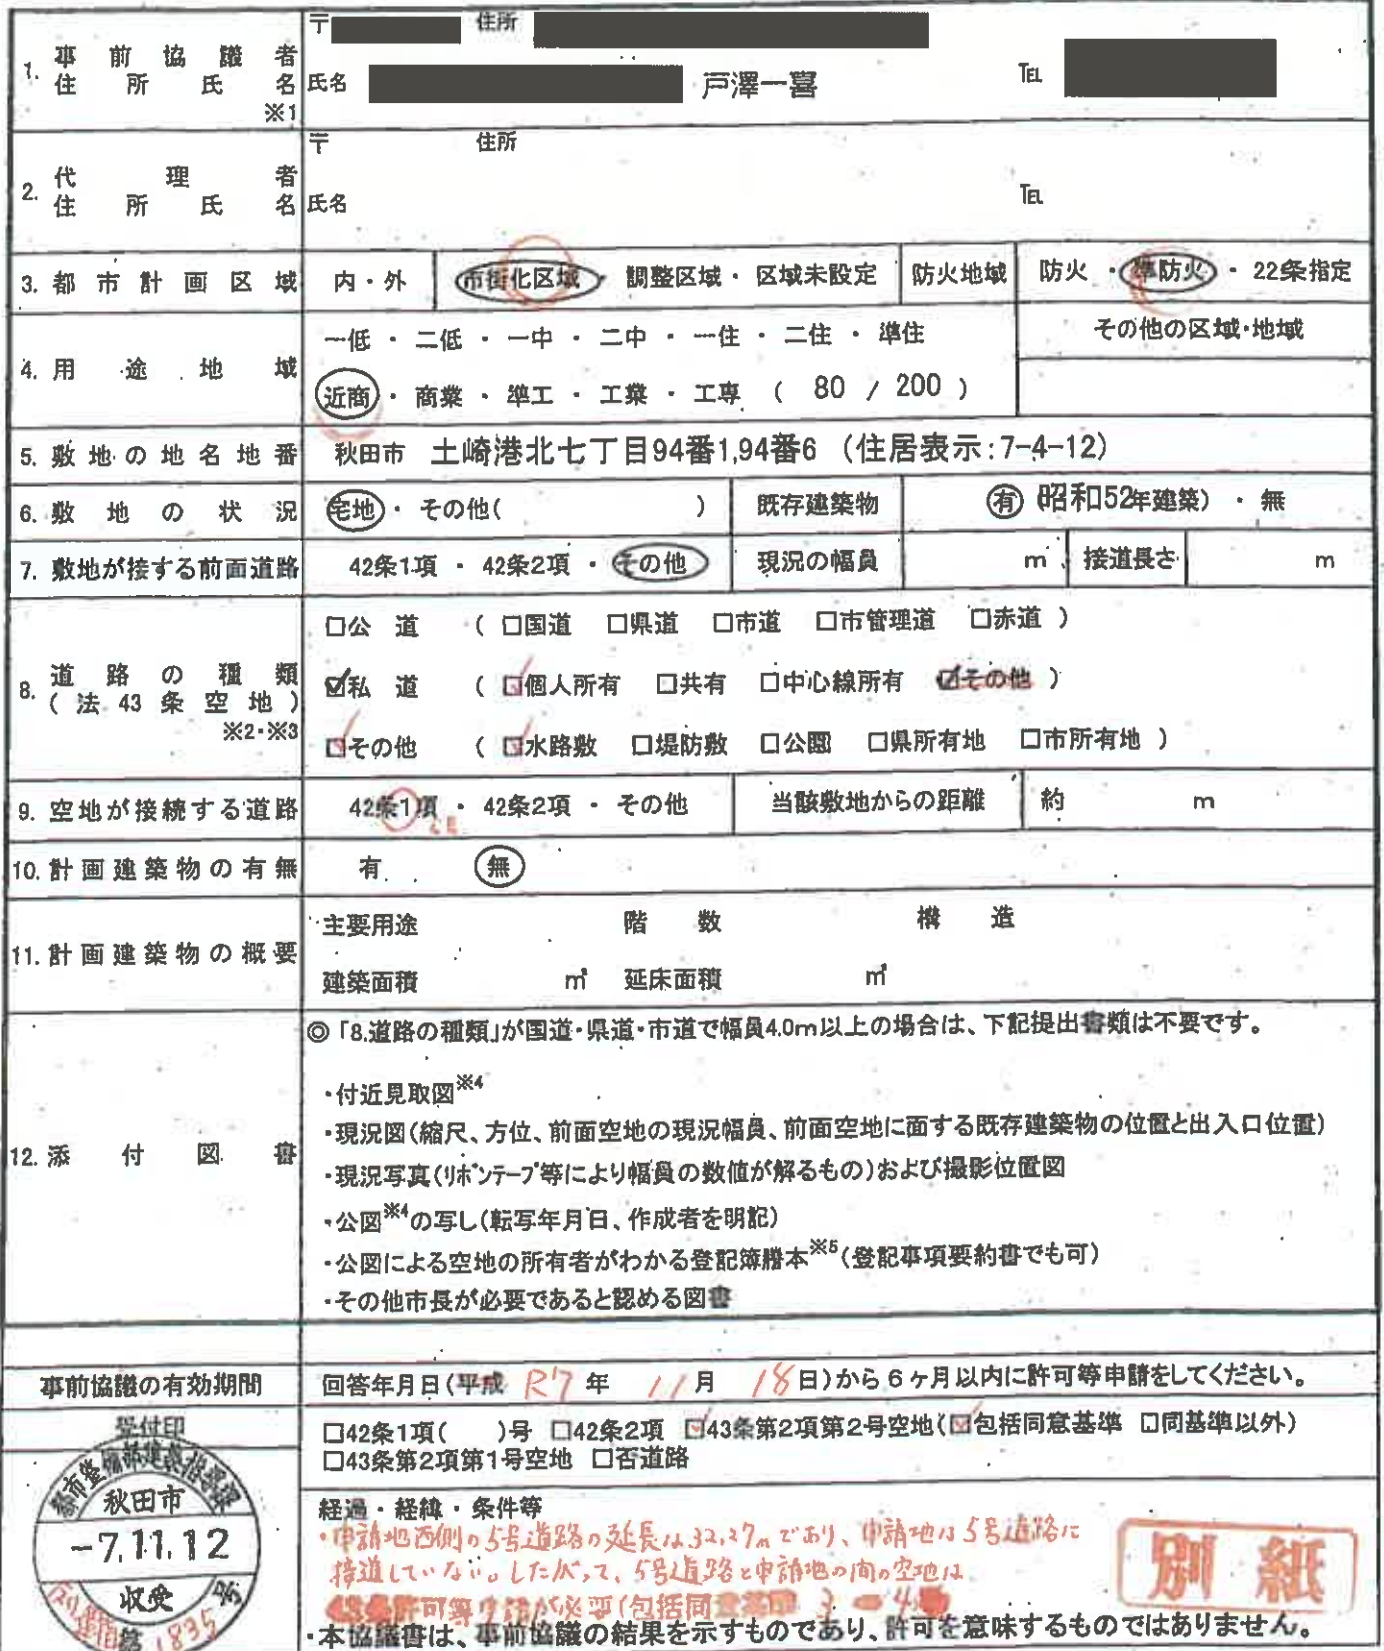 1. 事前協議者
住所氏名
※1
〒 住所
氏名 戸澤一喜 TEL
2. 代理者
住所氏名
〒 住所
氏名 TEL
3. 都市計画区域 内・外 市街化区域・調整区域・区域未設定 防火地域 防火・準防火・22条指定
4. 用途地域
一低・二低・一中・二中・一住・二住・準住
近商・商業・準工・工業・工専 ( 80 / 200 )
その他の区域・地域
5. 敷地の地名地番 秋田市 土崎港北七丁目94番1,94番6 (住居表示:7-4-12)
6. 敷地の状況 宅地・その他( ) 既存建築物 有(昭和52年建築)・無
7. 敷地が接する前面道路 42条1項・42条2項・その他 現況の幅員 m 接道長さ m
8. 道路の種類
(法43条空地)
※2・※3
□公道 ( □国道 □県道 □市道 □市管理道 □赤道 )
☑私道 ( ☑個人所有 □共有 □中心線所有 ☑その他 )
☑その他 ( ☑水路敷 □堤防敷 □公園 □県所有地 □市所有地 )
9. 空地が接続する道路 42条1項・42条2項・その他 当該敷地からの距離 約 m
10. 計画建築物の有無 有 無
11. 計画建築物の概要
主要用途 階数 構造
建築面積 ㎡ 延床面積 ㎡
12. 添付図書
◎「8.道路の種類」が国道・県道・市道で幅員4.0m以上の場合は、下記提出書類は不要です。
・付近見取図※4
・現況図(縮尺、方位、前面空地の現況幅員、前面空地に面する既存建築物の位置と出入口位置)
・現況写真(リボンテープ等により幅員の数値が解るもの)および撮影位置図
・公図※4の写し(転写年月日、作成者を明記)
・公図による空地の所有者がわかる登記簿謄本※5(登記事項要約書でも可)
・その他市長が必要であると認める図書
事前協議の有効期間 回答年月日(平成 R7年 11月 18日)から6ヶ月以内に許可等申請をしてください。
受付印
都市整備部建築指導課
秋田市
-7.11.12
収受
第 1835 号
□42条1項( )号 □42条2項 ☑43条第2項第2号空地(☑包括同意基準 □同基準以外)
□43条第2項第1号空地 □否道路
経過・経緯・条件等
・申請地西側の5号道路の延長は32.27mであり、申請地は5号道路に
接道していない。したがって、5号道路と申請地の間の空地は
43条許可等申請が必要(包括同意基準 3-4
別紙
・本協議書は、事前協議の結果を示すものであり、許可を意味するものではありません。